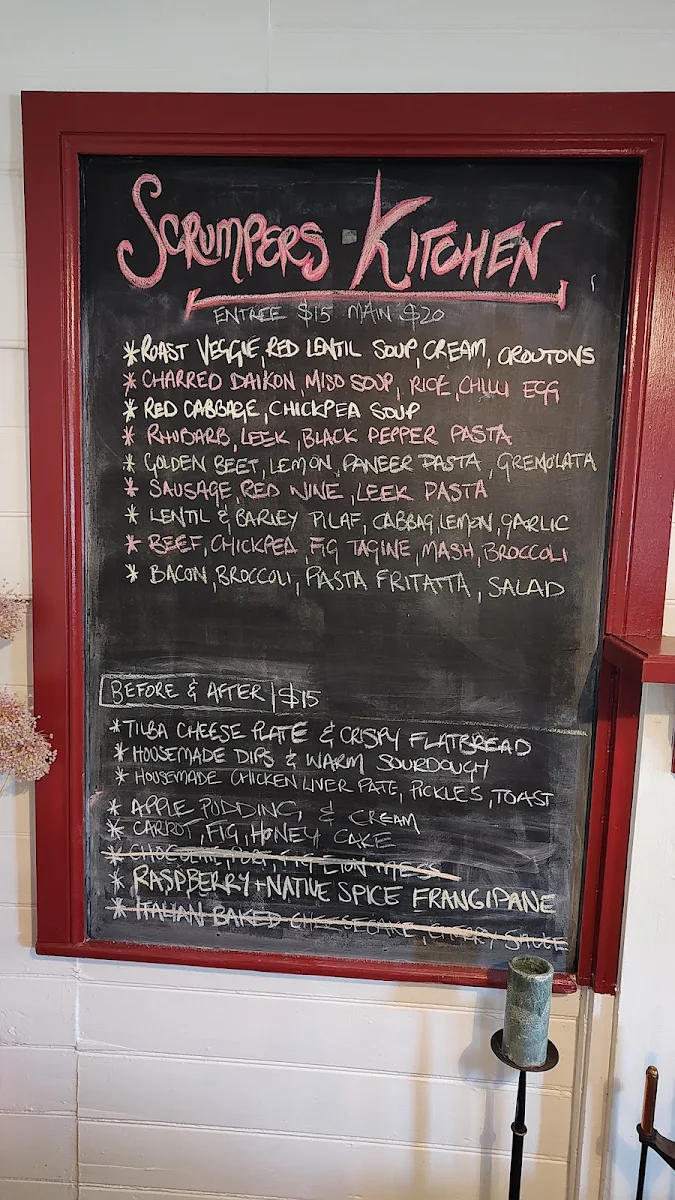 SCRUMPERS · KITCHEN
ENTREE $15 MAIN $20
* ROAST VEGGIE, RED LENTIL SOUP, CREAM, CROUTONS
* CHARRED DAIKON, MISO SOUP, RICE, CHILLI EGG
* RED CABBAGE, CHICKPEA SOUP
* RHUBARB, LEEK, BLACK PEPPER PASTA
* GOLDEN BEET, LEMON, PANEER PASTA, GREMOLATA
* SAUSAGE, RED WINE, LEEK PASTA
* LENTIL & BARLEY PILAF, CABBAG, LEMON, GARLIC
* BEEF, CHICKPEA, FIG TAGINE, MASH, BROCCOLI
* BACON, BROCCOLI, PASTA FRITATTA, SALAD
BEFORE & AFTER | $15
* TILBA CHEESE PLATE & CRISPY FLATBREAD
* HOUSEMADE DIPS & WARM SOURDOUGH
* HOUSEMADE CHICKEN LIVER PATE, PICKLES, TOAST
* APPLE PUDDING & CREAM
* CARROT, FIG, HONEY CAKE
* CHOCOLATE, PORT, FIG MESS
* RASPBERRY + NATIVE SPICE FRANGIPANE
* ITALIAN BAKED CHEESECAKE, CHERRY SAUCE